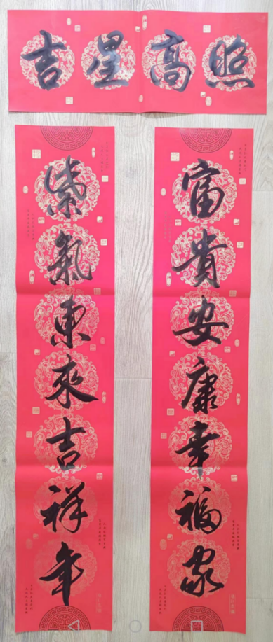 吉星高照
富貴安康幸福家
紫氣東來吉祥年